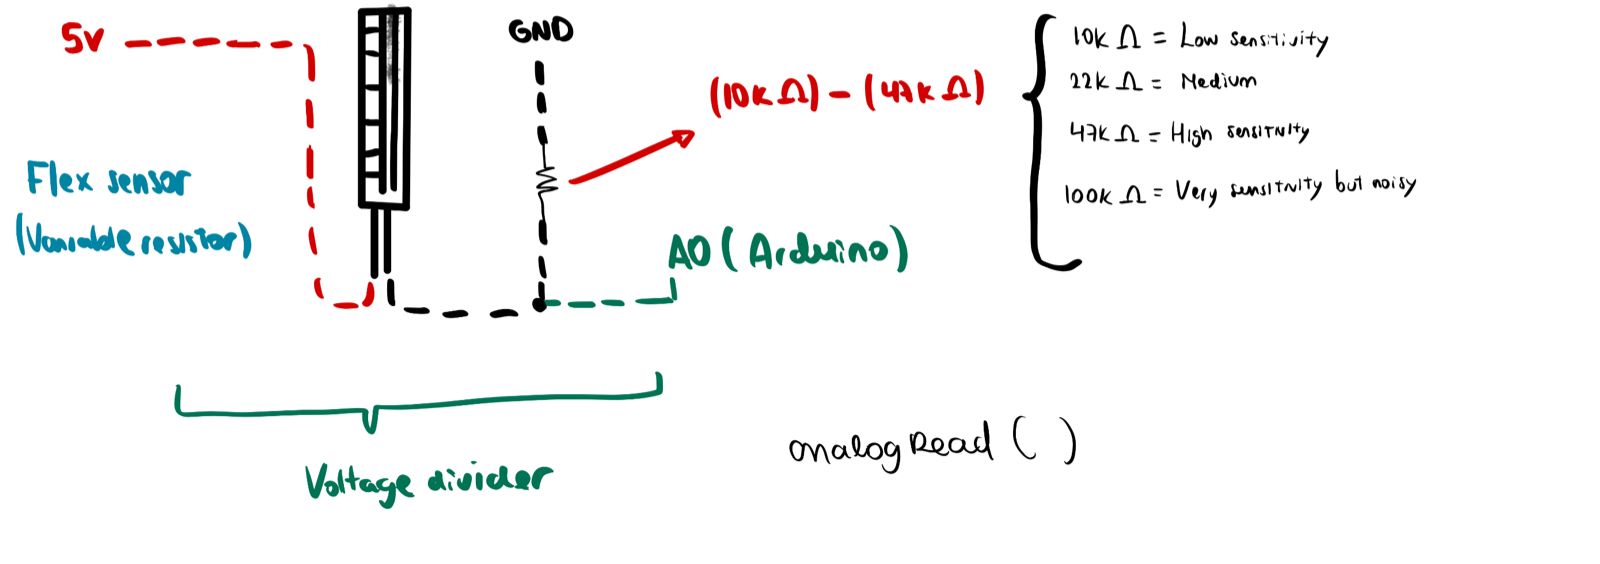 5V
GND
(10K Ω) - (47K Ω)
10K Ω = Low sensitivity
22K Ω = Medium
47K Ω = High sensitivity
100K Ω = Very sensitivity but noisy
Flex sensor
(Variable resistor)
A0 (Arduino)
Voltage divider
analogRead ( )